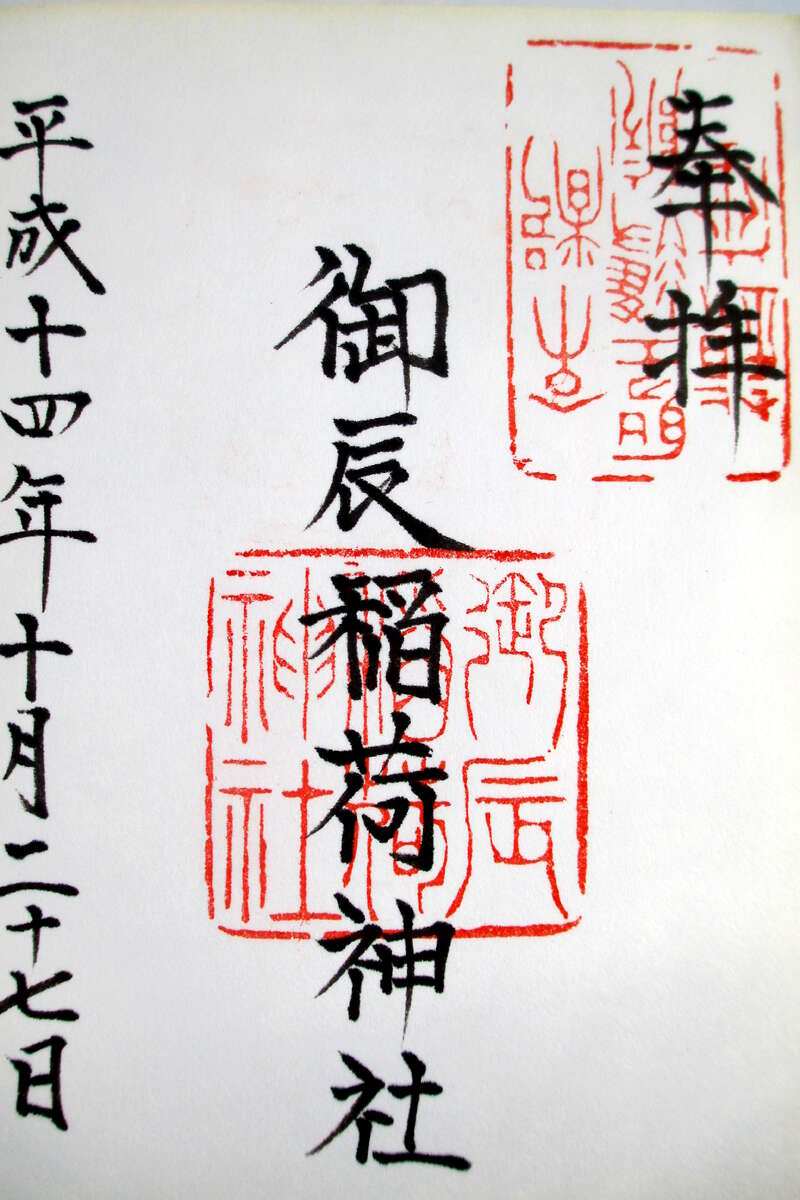 奉拝
御辰稲荷神社
平成十四年十月二十七日
御辰
稲荷
神社